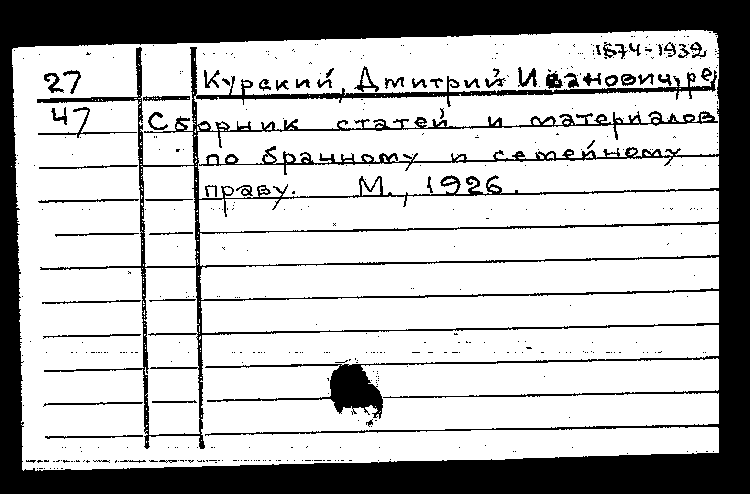 1874-1932
27 Курский, Дмитрий Иванович, ре
47 Сборник статей и материалов
по брачному и семейному
праву. М., 1926.